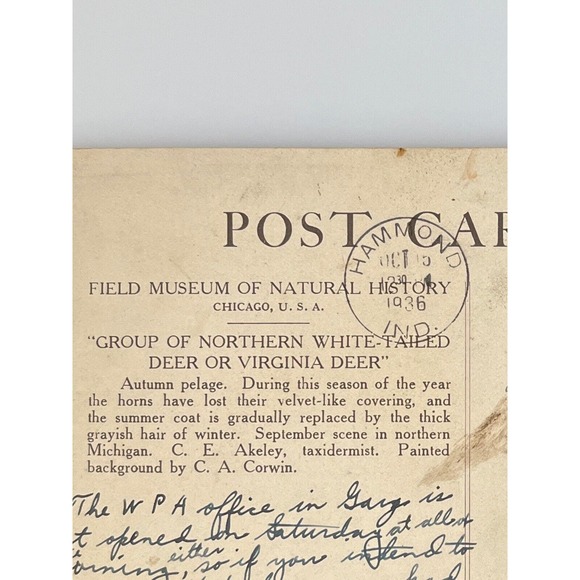 POST CAR
HAMMOND
OCT 15
12 30
1936
IND.
FIELD MUSEUM OF NATURAL HISTORY
CHICAGO, U. S. A.
"GROUP OF NORTHERN WHITE-TAILED
DEER OR VIRGINIA DEER"
Autumn pelage. During this season of the year
the horns have lost their velvet-like covering, and
the summer coat is gradually replaced by the thick
grayish hair of winter. September scene in northern
Michigan. C. E. Akeley, taxidermist. Painted
background by C. A. Corwin.
The W P A office in Gary is
t opened on Saturday at all or
either
orning, so if you intend to